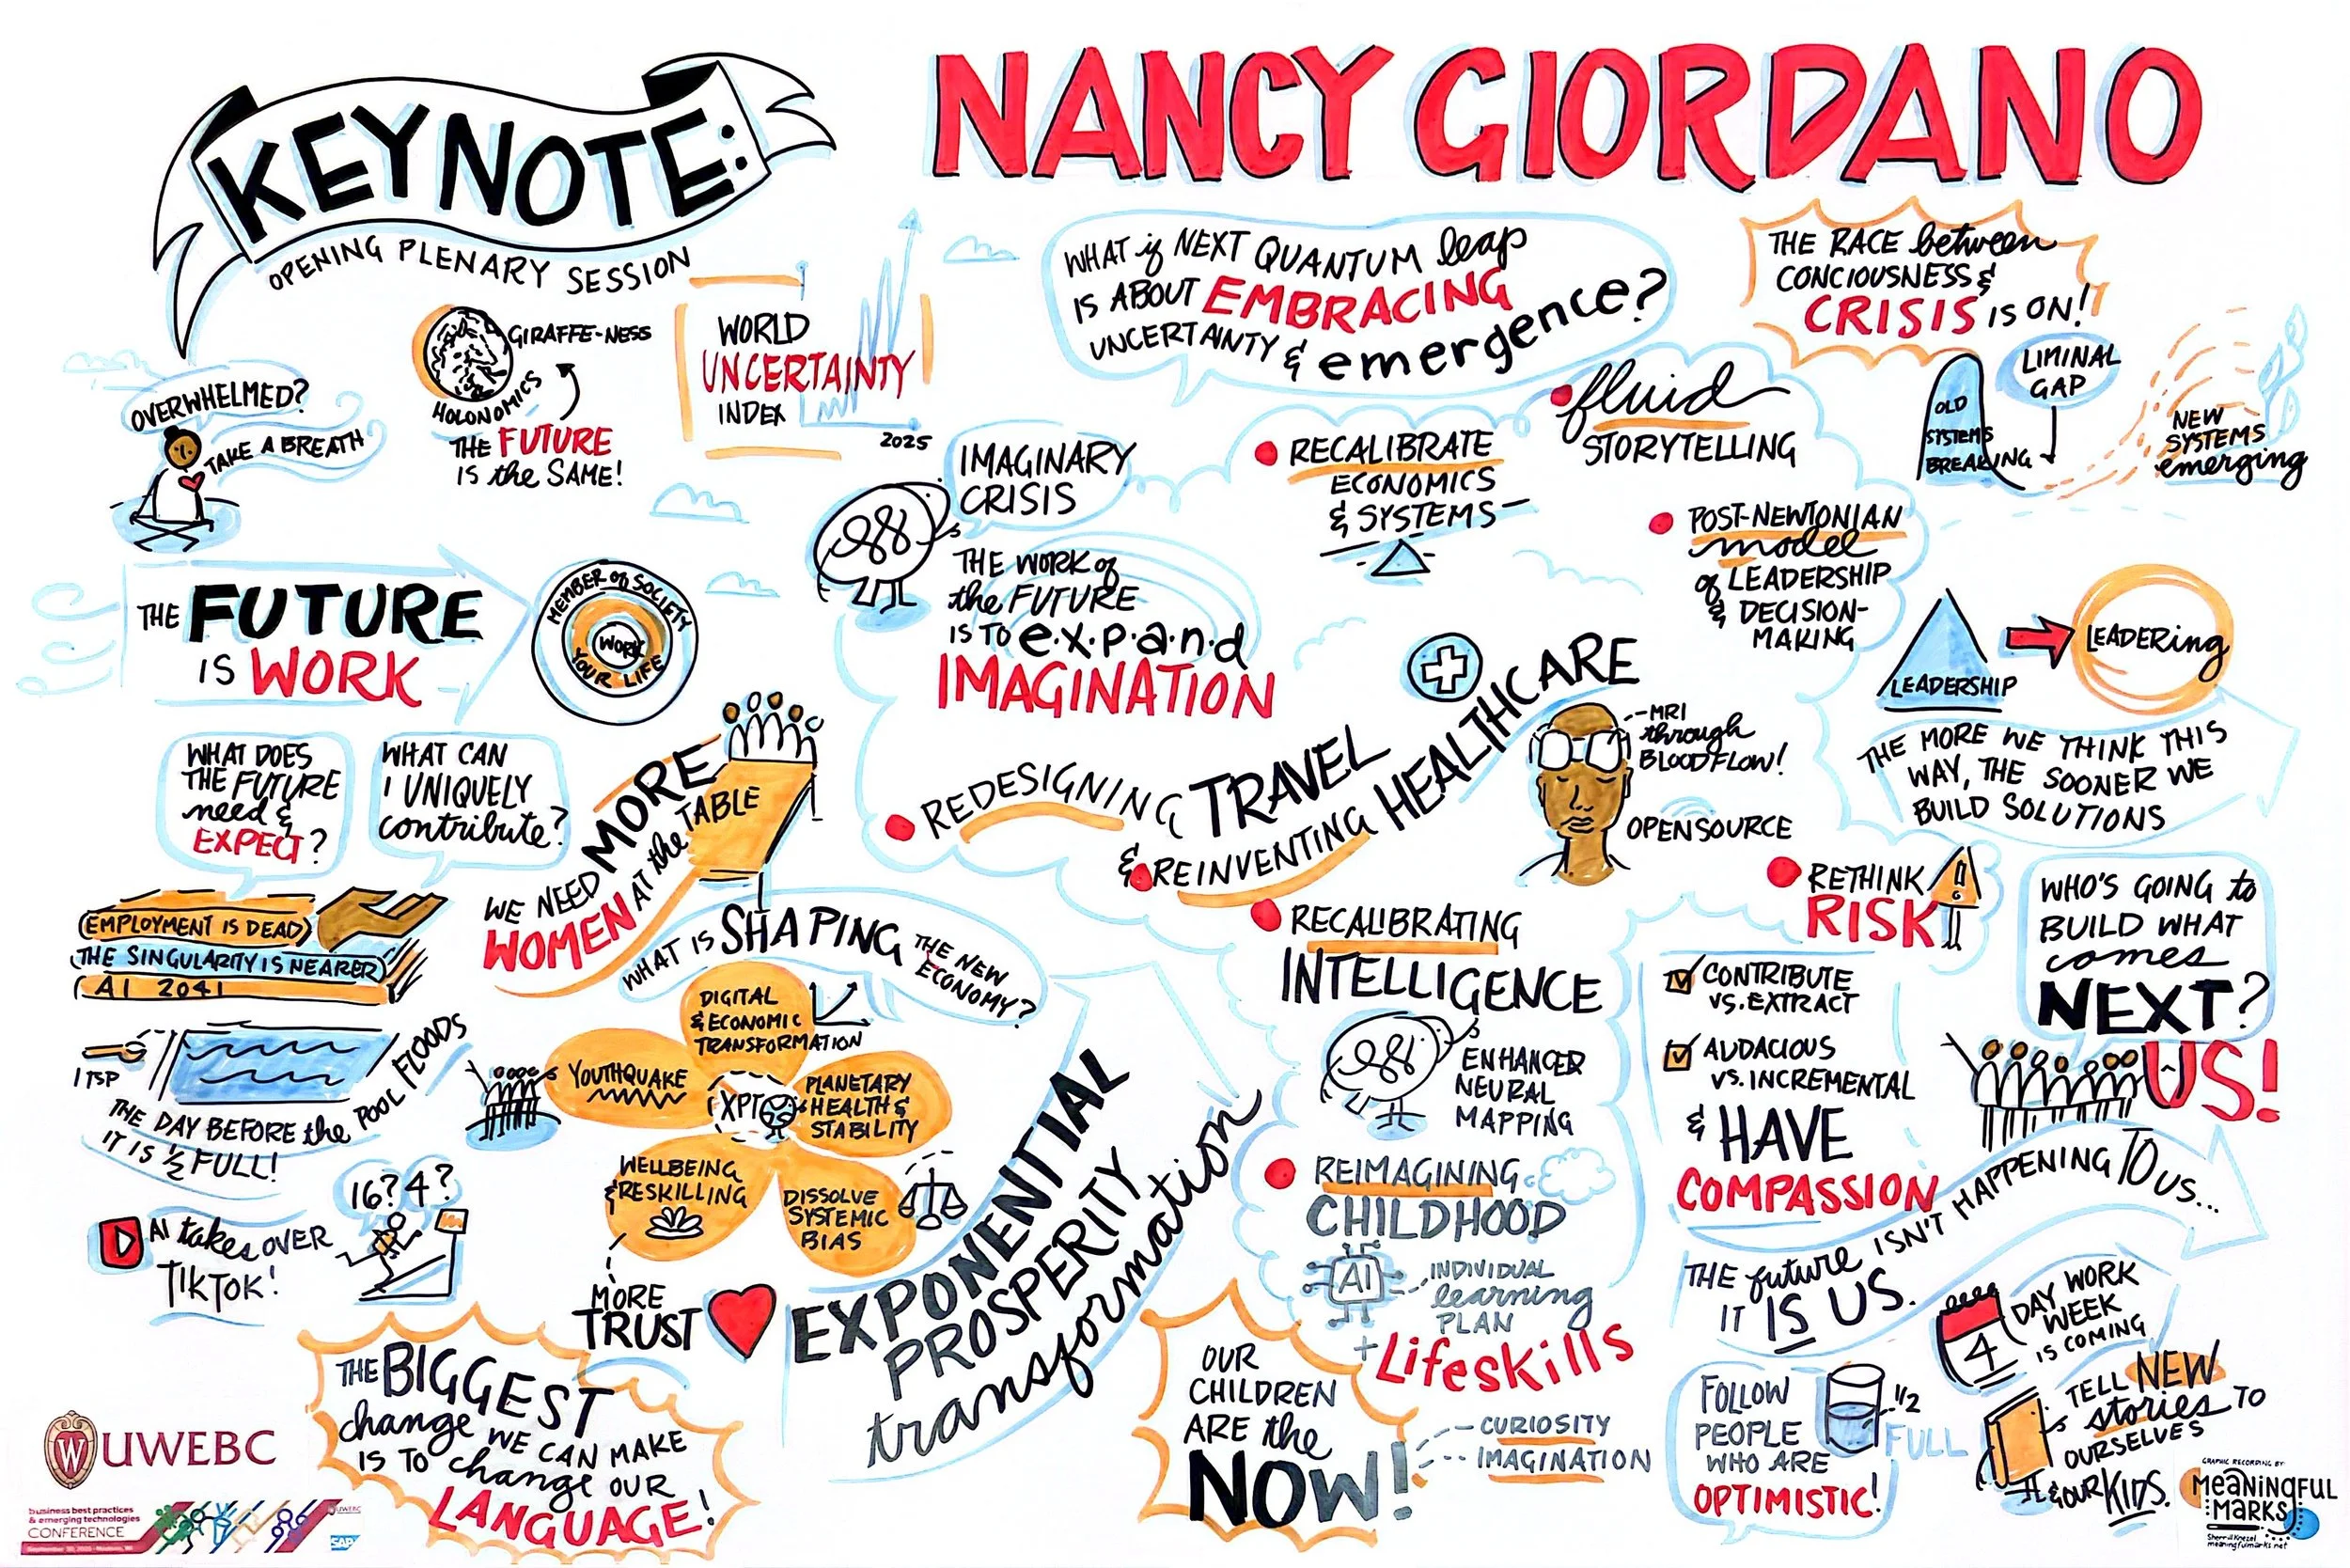 KEYNOTE:
OPENING PLENARY SESSION
NANCY GIORDANO
OVERWHELMED?
TAKE A BREATH
GIRAFFE-NESS
HOLONOMICS
THE FUTURE
IS the SAME!
WORLD
UNCERTAINTY
INDEX
2025
WHAT if NEXT QUANTUM leap
IS ABOUT EMBRACING
UNCERTAINTY & emergence?
THE RACE between
CONCIOUSNESS &
CRISIS IS ON!
OLD
SYSTEMS
BREAKING
LIMINAL
GAP
NEW
SYSTEMS
emerging
IMAGINARY
CRISIS
THE WORK of
the FUTURE
IS TO e.x.p.a.n.d
IMAGINATION
RECALIBRATE
ECONOMICS
& SYSTEMS
fluid
STORYTELLING
POST-NEWTONIAN
model
of LEADERSHIP
& DECISION-
MAKING
LEADERSHIP
LEADERing
THE MORE WE THINK THIS
WAY, THE SOONER WE
BUILD SOLUTIONS
THE FUTURE
IS WORK
MEMBER of SOCIETY
YOUR LIFE
WORK
WHAT DOES
THE FUTURE
need &
EXPECT?
WHAT CAN
I UNIQUELY
contribute?
EMPLOYMENT IS DEAD
THE SINGULARITY IS NEARER
AI 2041
WE NEED MORE
WOMEN AT the TABLE
REDESIGNING TRAVEL
& REINVENTING HEALTHCARE
MRI
through
BLOODFLOW!
OPENSOURCE
1 TSP
THE DAY BEFORE the POOL FLOODS
IT IS 1/2 FULL!
AI takes OVER
TIKTOK!
16? 4?
WHAT IS SHAPING THE NEW
ECONOMY?
DIGITAL
& ECONOMIC
TRANSFORMATION
YOUTHQUAKE
XPT
PLANETARY
HEALTH &
STABILITY
WELLBEING
& RESKILLING
DISSOLVE
SYSTEMIC
BIAS
MORE
TRUST
EXPONENTIAL
PROSPERITY
transformation
RECALIBRATING
INTELLIGENCE
ENHANCED
NEURAL
MAPPING
REIMAGINING
CHILDHOOD
AI
INDIVIDUAL
learning
PLAN
+ Lifeskills
CURIOSITY
IMAGINATION
OUR
CHILDREN
ARE the
NOW!
RETHINK
RISK
CONTRIBUTE
VS. EXTRACT
AUDACIOUS
VS. INCREMENTAL
& HAVE
COMPASSION
WHO'S GOING to
BUILD WHAT
comes
NEXT?
US!
THE future ISN'T HAPPENING TO US...
IT IS US.
4
DAY WORK
WEEK
IS COMING
FOLLOW
PEOPLE
WHO ARE
OPTIMISTIC!
1/2
FULL
TELL NEW
stories TO
OURSELVES
& OUR KIDS.
THE BIGGEST
change WE CAN MAKE
IS TO change OUR
LANGUAGE!
W UWEBC
business best practices
& emerging technologies
CONFERENCE
UWEBC
SAP
GRAPHIC RECORDING BY:
MeaNiNgFUL
MaRKS
Sherrill Knezel
meaningfulmarks.net